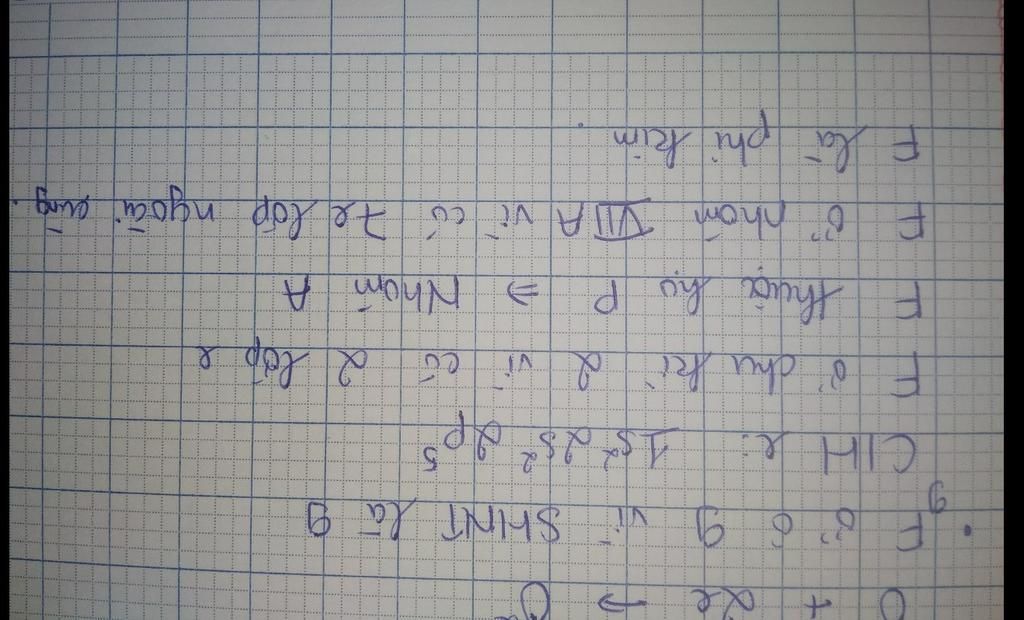 O + 2e → O
• F ở ô 9 vì SHNT là 9
9
CHH e: 1s² 2s² 2p⁵
F ở chu kì 2 vì có 2 lớp e
F thuộc họ p ⇒ Nhóm A
F ở nhóm VIIA vì có 7e lớp ngoài cùng.
F là phi kim.